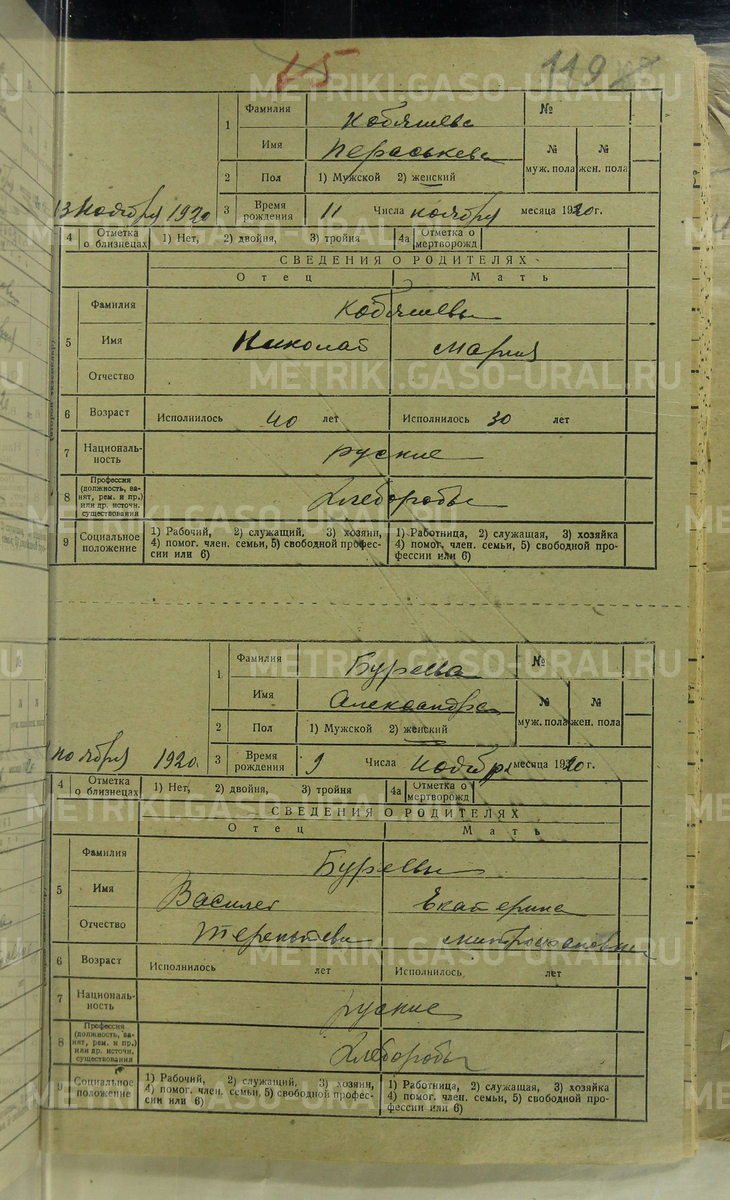 15 119
1 Фамилия Кобяшева №
Имя Пераськева № муж. пола № жен. пола
2 Пол 1) Мужской 2) женский
13 Ноября 1920 3 Время рождения 11 Числа ноября месяца 1920 г.
4 Отметка о близнецах 1) Нет, 2) двойня, 3) тройня 4а Отметка о мертворожд
СВЕДЕНИЯ О РОДИТЕЛЯХ
Отец Мать
Фамилия Кобяшевы
5 Имя Николай Мария
Отчество
6 Возраст Исполнилось 40 лет Исполнилось 30 лет
7 Националь-
ность руские
8 Профессия
(должность, за-
нят, рем. и пр.)
или др. источн.
существования Хлеборобы
9 Социальное
положение 1) Рабочий, 2) служащий, 3) хозяин, 1) Работница, 2) служащая, 3) хозяйка
4) помог. член. семьи, 5) свободной профес- 4) помог. член. семьи, 5) свободной про-
сии или 6) фессии или 6)
1 Фамилия Буреева №
Имя Александра № муж. пола № жен. пола
2 Пол 1) Мужской 2) женский
ноября 1920 3 Время рождения 9 Числа Ноября месяца 1920 г.
4 Отметка о близнецах 1) Нет, 2) двойня, 3) тройня 4а Отметка о мертворожд
СВЕДЕНИЯ О РОДИТЕЛЯХ
Отец Мать
Фамилия Буревы
5 Имя Василег Екатерина
Отчество Терентьеви митрофановны
6 Возраст Исполнилось лет Исполнилось лет
7 Националь-
ность руские
8 Профессия
(должность, за-
нят, рем. и пр.)
или др. источн.
существования Хлеборобы
9 Социальное
положение 1) Рабочий, 2) служащий, 3) хозяин, 1) Работница, 2) служащая, 3) хозяйка
4) помог. член. семьи, 5) свободной профес- 4) помог. член. семьи, 5) свободной про-
сии или 6) фессии или 6)
METRIKI.GASO-URAL.RU